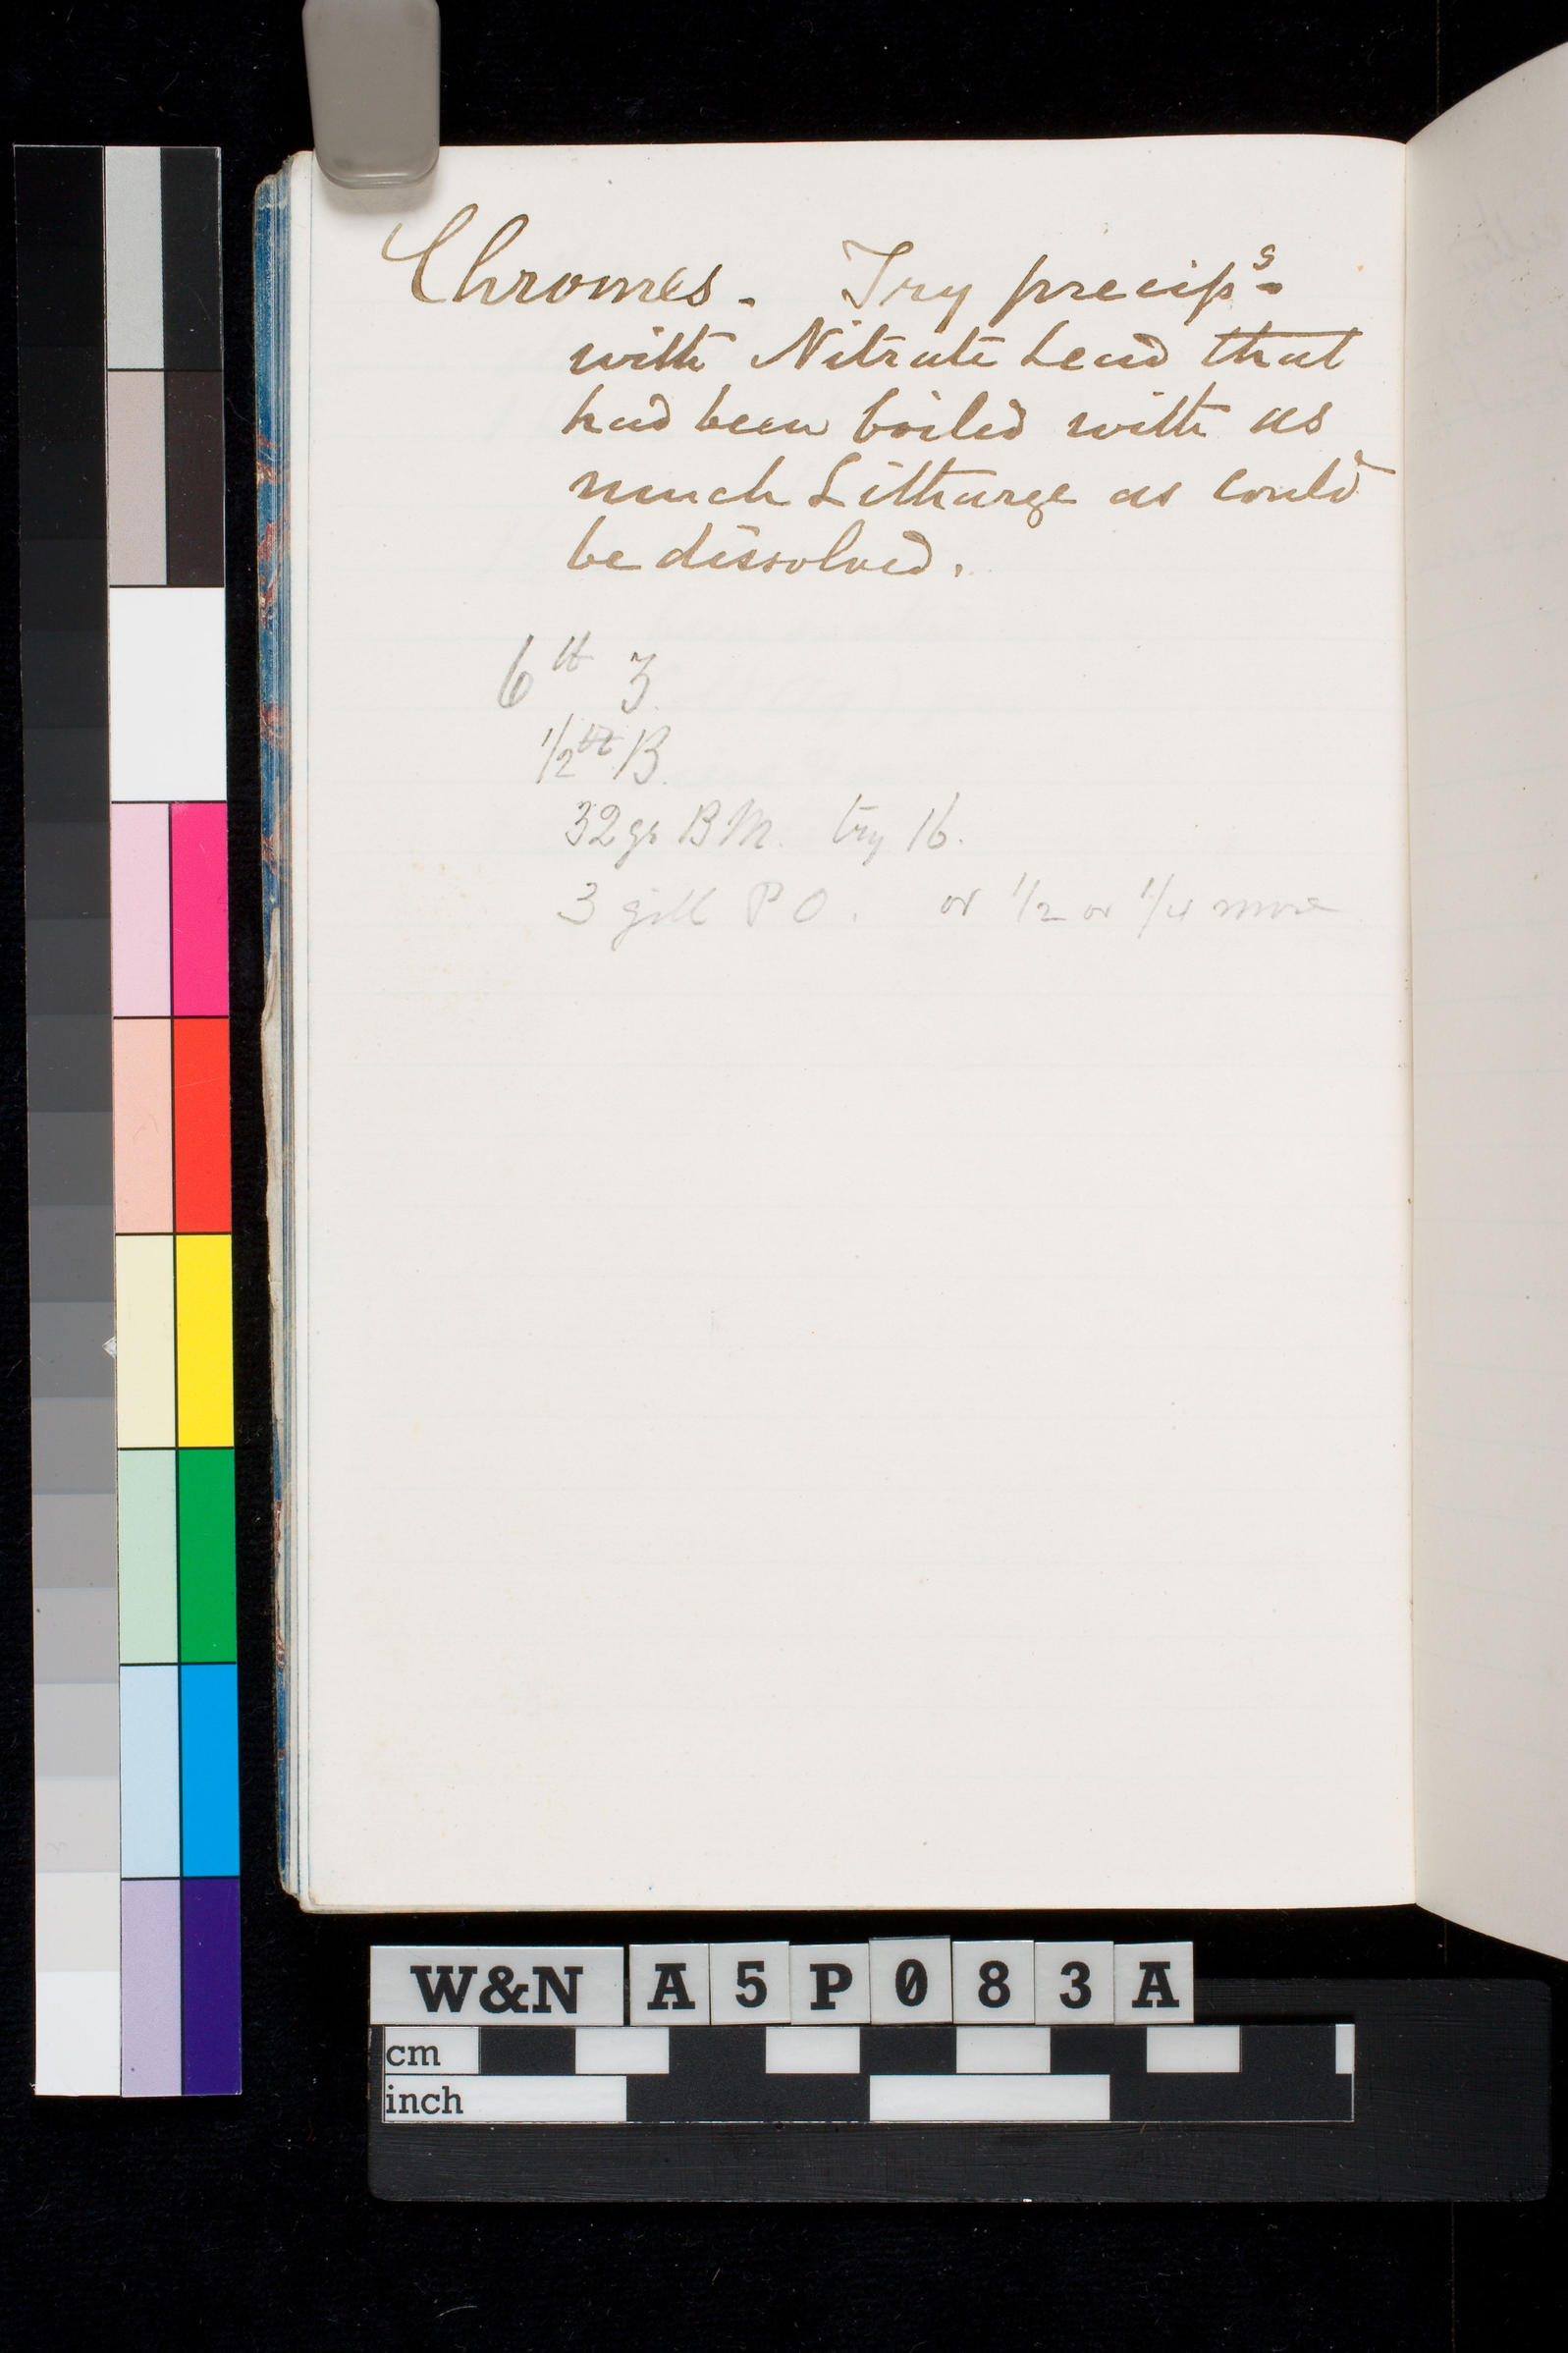 Chromes. Try precips.
with Nitrate Lead that
had been boiled with as
much Litharge as could
be dissolved.
6 lb 3.
1/2 lb B.
32 gr B M. try 16.
3 gill P O. or 1/2 or 1/4 more
W&N A5P083A
cm
inch